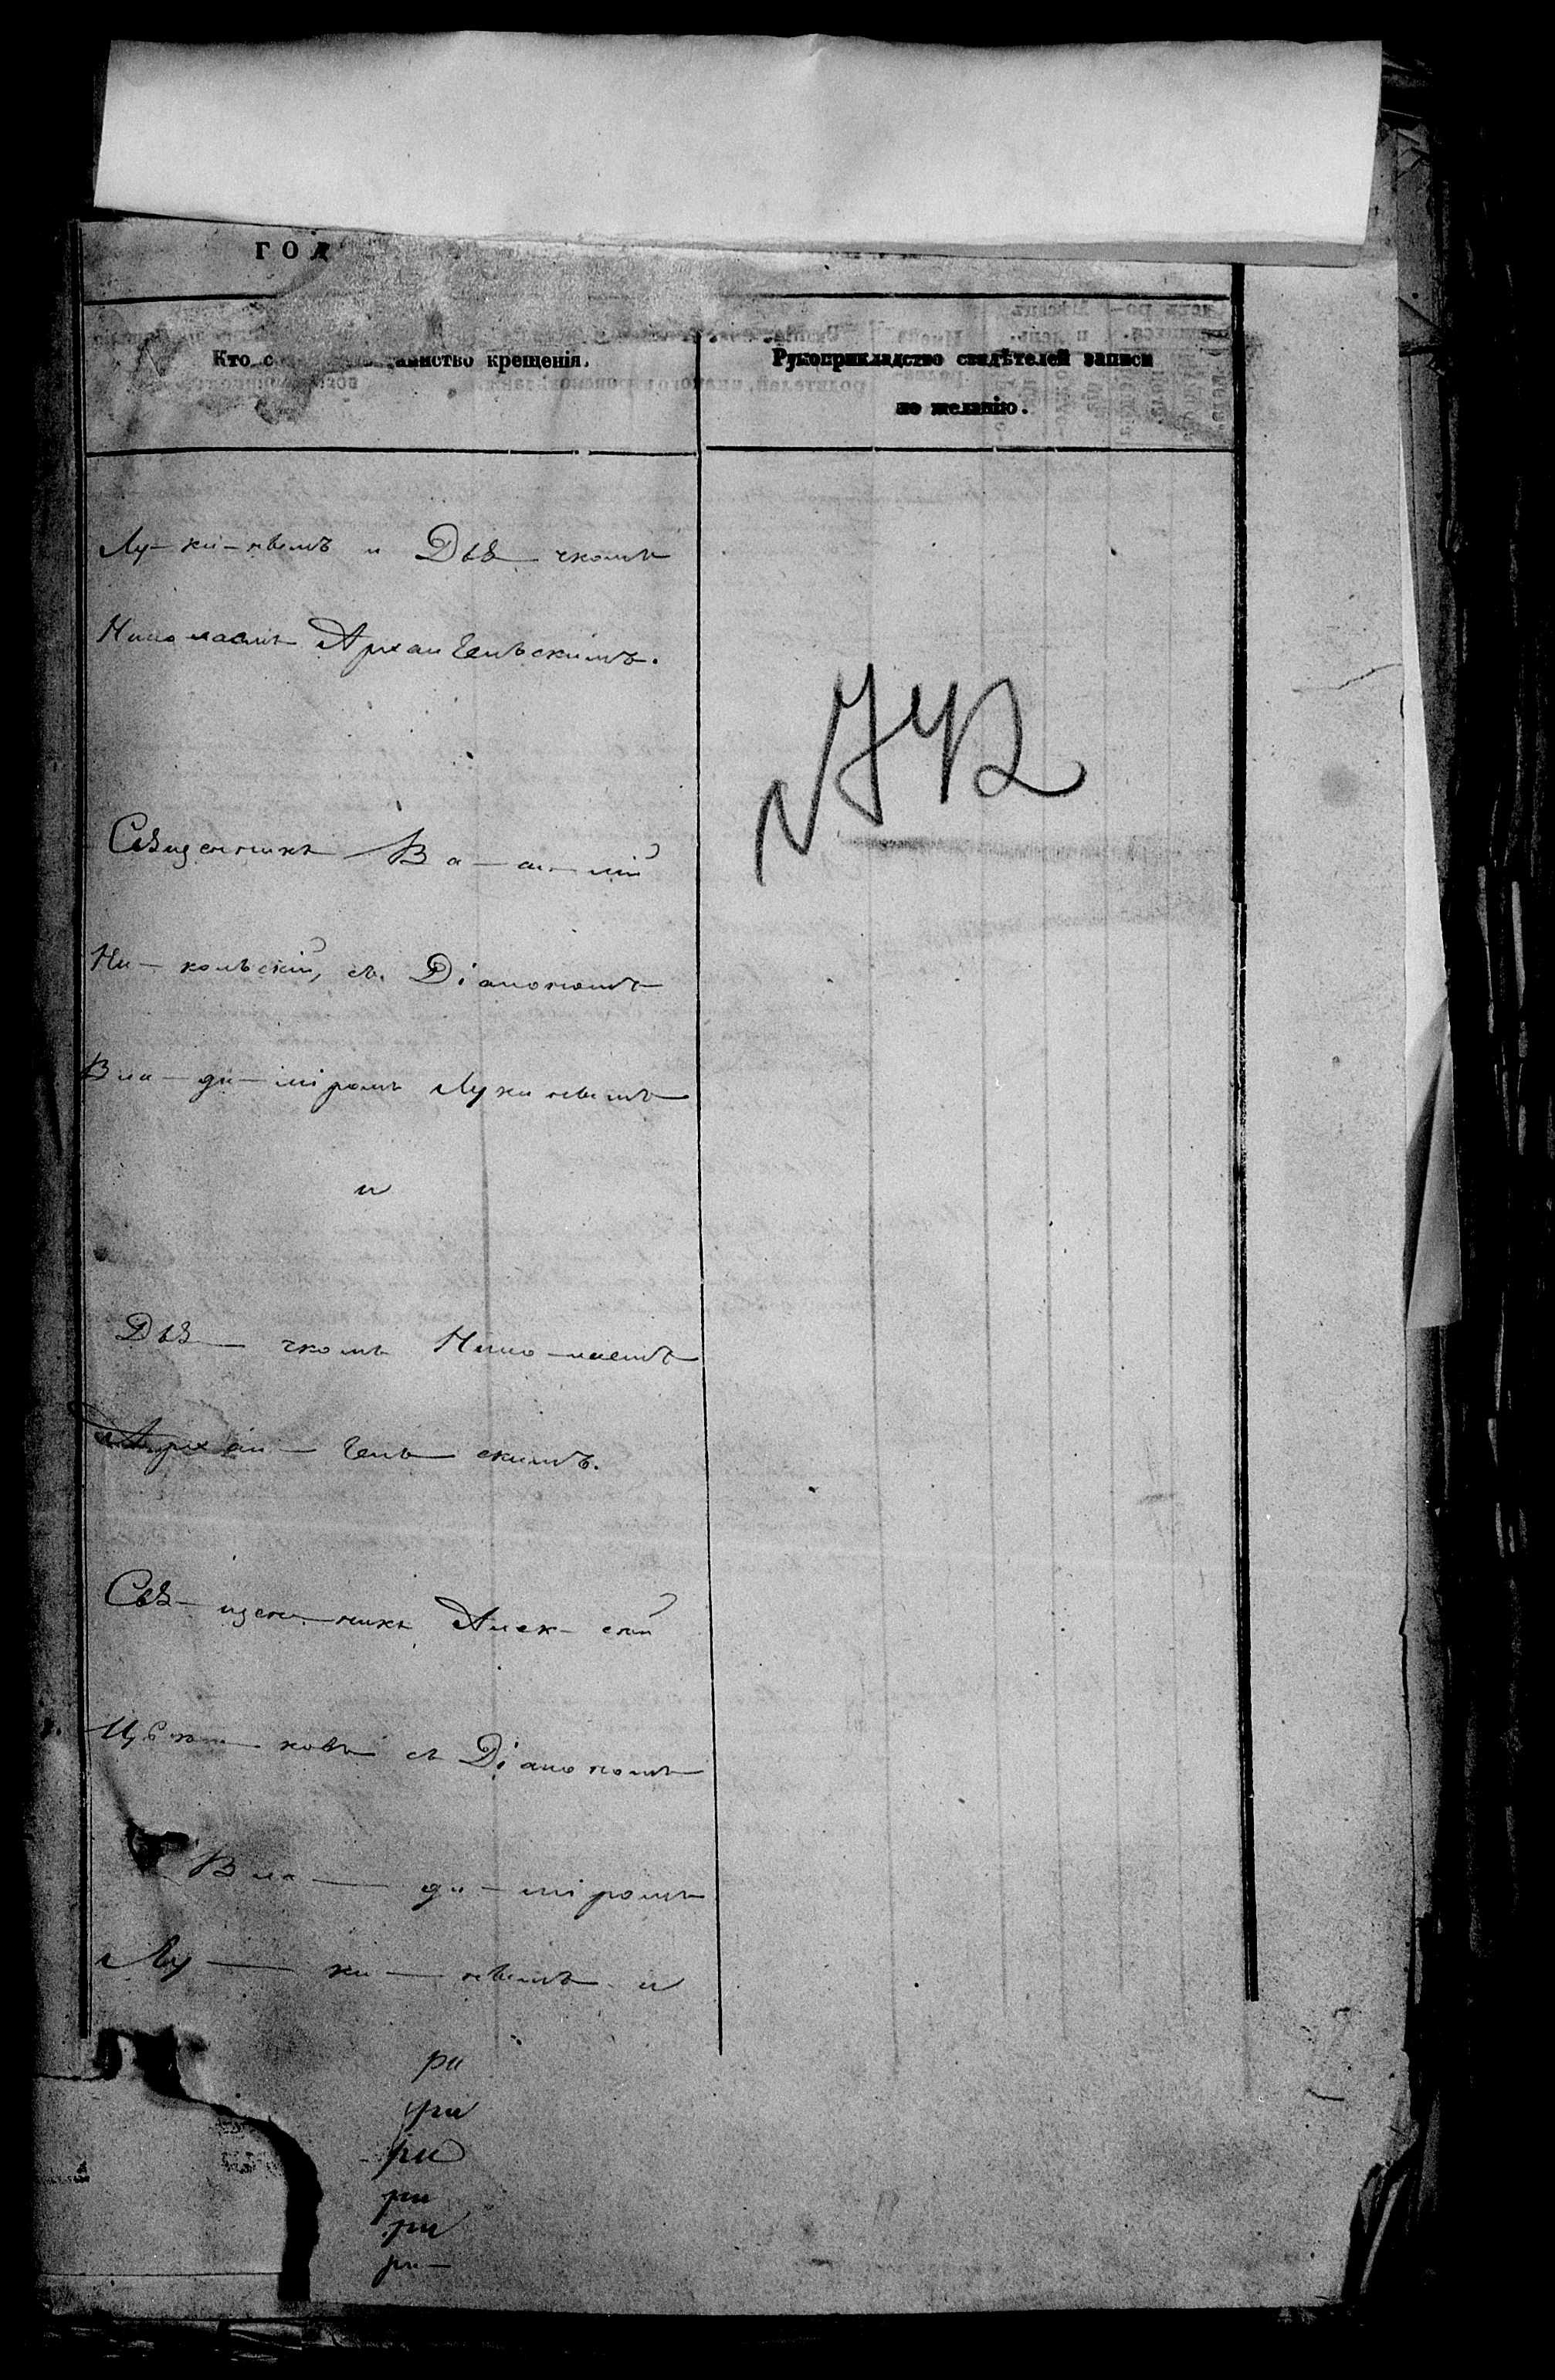 ГОД
Кто с аинство крещенія.
Рукоприкладство свидѣтелей записи
по желанію.
Лу-ки-нымъ и Дья-чкомъ
Николаемъ Архангельскимъ.
Священникъ Ва-си-лій
Ни-кольскій, съ Діакономъ
Вла-ди-міромъ Лукинымъ
и
Дья-чкомъ Нико-лаемъ
Архан-гель-скимъ.
Свя-щен-никъ Алек-сѣй
ковъ съ Діакономъ
Вла-ди-міромъ
Лу-ки-нымъ и
ри
ри
ри
ри
ри
ри-